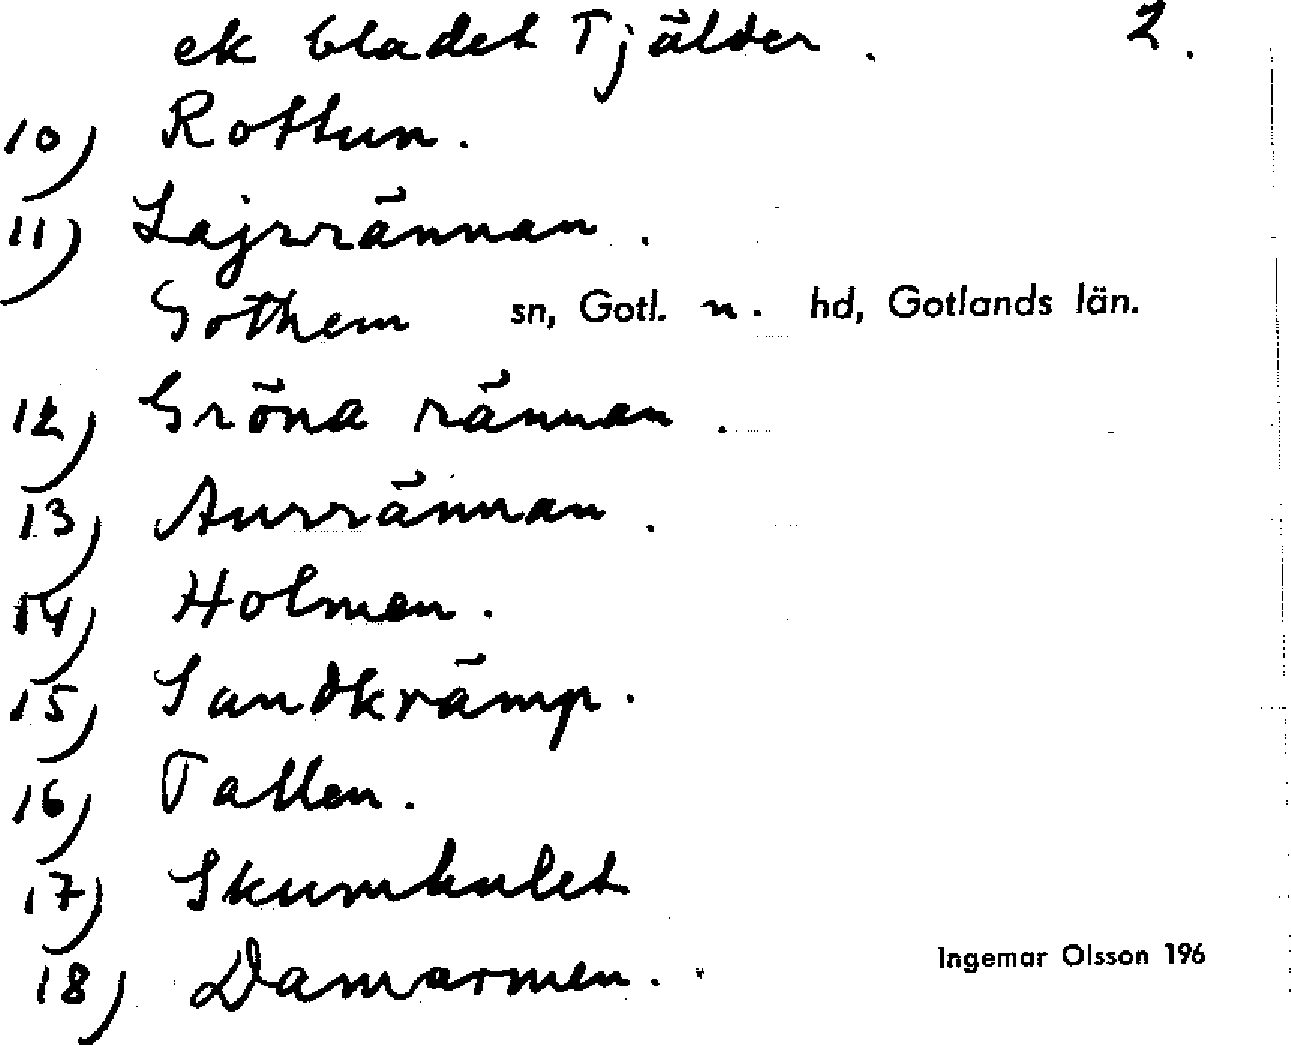 ek bladet Tjälder. 2.
10) Rottun.
11) Lajsrännan.
Gothem sn, Gotl. n. hd, Gotlands län.
12) Gröna rännan.
13) Aurrännan.
14) Holmen.
15) Sandkrämp.
16) Tallen.
17) Skumhulet
18) Damarmen.
Ingemar Olsson 196